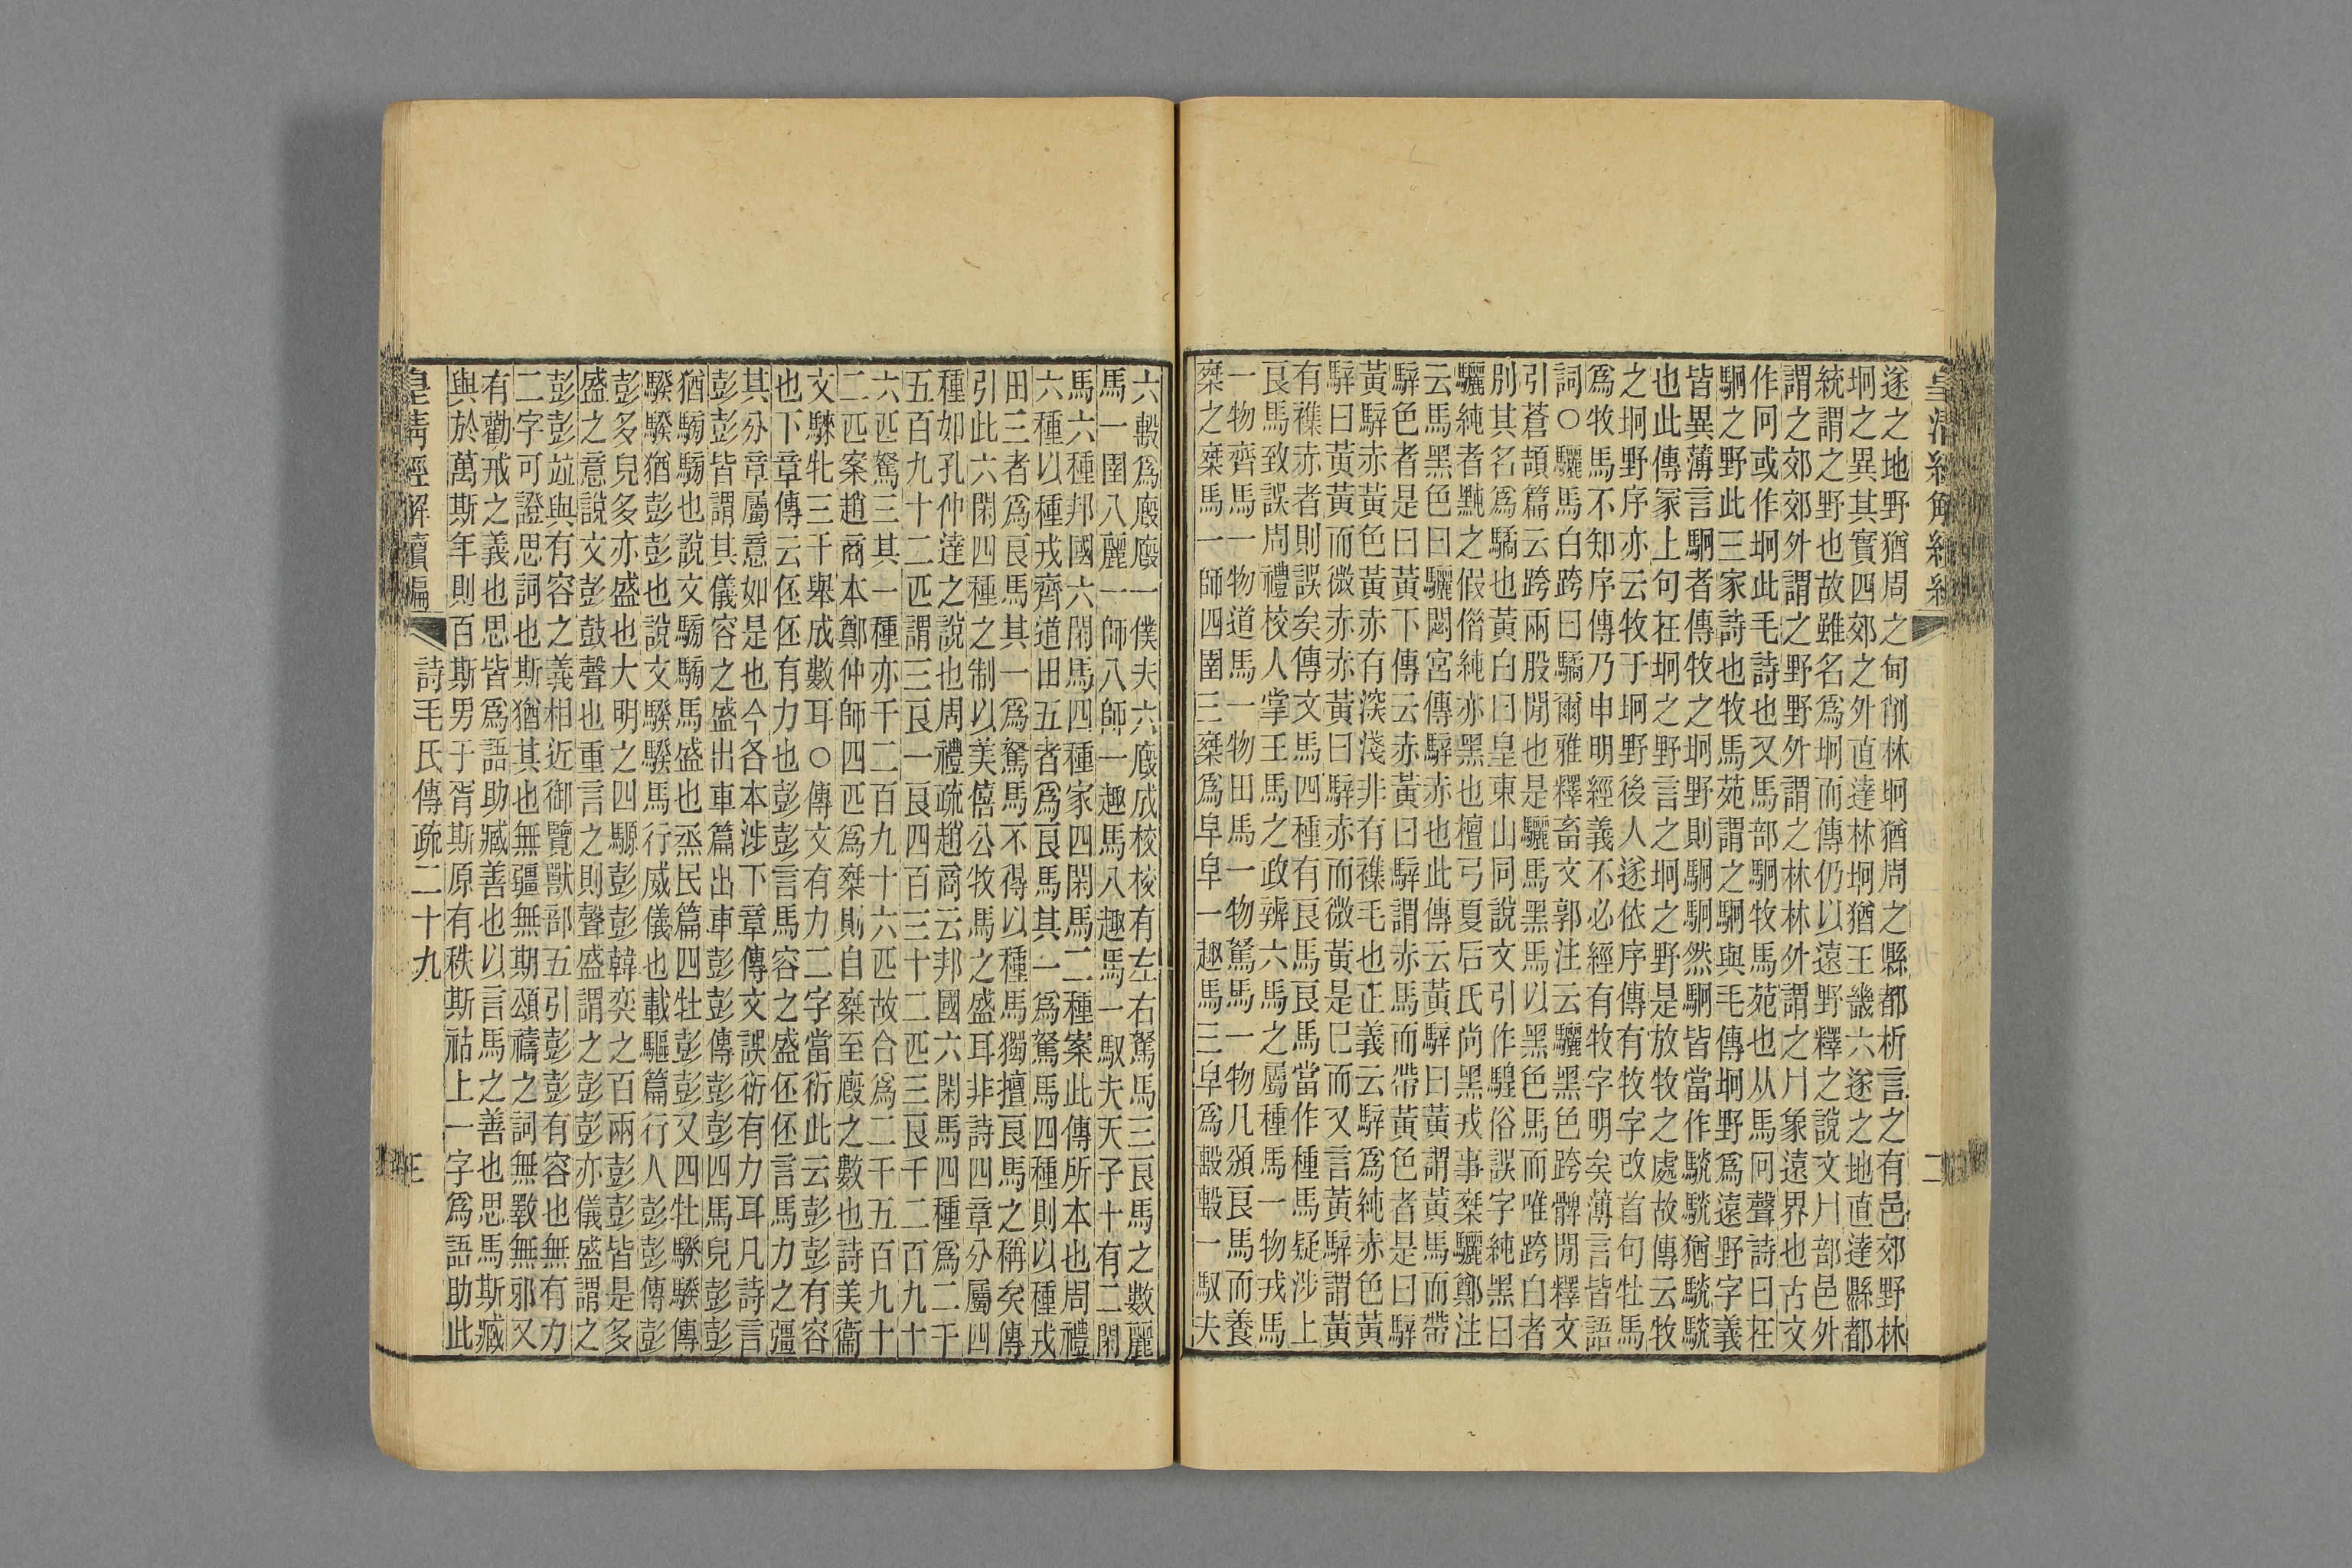 遂之地野猶周之甸削林坰猶周之縣都析言之有邑郊野林
坰之異其實四郊之外直達林坰猶王畿六遂之地直達縣都
統謂之野也故雖名爲坰而傳仍以遠野釋之說文冂部邑外
謂之郊郊外謂之野野外謂之林林外謂之冂象遠界也古文
作冋或作坰此毛詩也又馬部駉牧馬苑也从馬冋聲詩曰在
駉之野此三家詩也牧馬苑謂之駉與毛傳坰野爲遠野字義
皆異薄言駉者傳牧之坰野則駉駉然駉皆當作驍驍猶驍驍
也此傳冡上句在坰之野言之坰之野是放牧之處故傳云牧
之坰野序亦云牧于坰野後人遂依序傳有牧字改首句牡馬
爲牧馬不知序傳乃申明經義不必經有牧字明矣薄言皆語
詞○驪馬白跨曰驈爾雅釋畜文郭注云驪黑色跨髀閒釋文
引蒼頡篇云跨兩股閒也是驪馬黑馬以黑色馬而唯跨白者
別其名爲驈也黃白曰皇東山同說文引作騜俗誤字純黑曰
驪純者黗之假借純亦黑也檀弓夏后氏尚黑戎事椉驪鄭注
云馬黑色曰驪閟宮傳騂赤也此傳云黃騂曰黃謂黃馬而帶
騂色者是曰黃下傳云赤黃曰騂謂赤馬而帶黃色者是曰騂
黃騂赤黃色黃赤有深淺非有襍毛也正義云騂爲純赤色黃
騂曰黃黃而微赤赤黃曰騂赤而微黃是巳而又言黃騂謂黃
有襍赤者則誤矣傳文馬四種有良馬良馬當作種馬疑涉上
良馬致誤周禮校人掌王馬之政辨六馬之屬種馬一物戎馬
一物齊馬一物道馬一物田馬一物駑馬一物凡頒良馬而養
椉之椉馬一師四圉三椉爲皁皁一趣馬三皁爲毄毄一馭夫
六毄爲廄廄一僕夫六廄成校校有左右駑馬三良馬之數麗
馬一圉八麗一師八師一趣馬八趣馬一馭夫天子十有二閑
馬六種邦國六閑馬四種家四閑馬二種案此傳所本也周禮
六種以種戎齊道田五者爲良馬其一爲駑馬四種則以種戎
田三者爲良馬其一爲駑馬不得以種馬獨擅良馬之稱矣傳
引此六閑四種之制以美僖公牧馬之盛耳非詩四章分屬四
種如孔仲達之說也周禮疏趙商云邦國六閑馬四種爲二千
五百九十二匹謂三良一良四百三十二匹三良千二百九十
六匹駑三其一種亦千二百九十六匹故合爲二千五百九十
二匹案趙商本鄭仲師四匹爲椉則自椉至廄之數也詩美衞
文騋牝三千舉成數耳○傳文有力二字當衍此云彭彭有容
也下章傳云伾伾有力也彭彭言馬容之盛伾伾言馬力之彊
其分章屬意如是也今各本涉下章傳文誤衍有力耳凡詩言
彭彭皆謂其儀容之盛出車篇出車彭彭傳彭彭四馬皃彭彭
猶騯騯也說文騯騯馬盛也烝民篇四牡彭彭又四牡騤騤傳
騤騤猶彭彭也說文騤騤馬行威儀也載驅篇行人彭彭傳彭
彭多皃多亦盛也大明之四騵彭彭韓奕之百兩彭彭皆是多
盛之意說文彭鼓聲也重言之則聲盛謂之彭彭亦儀盛謂之
彭彭竝與有容之義相近御覽獸部五引彭彭有容也無有力
二字可證思詞也斯猶其也無疆無期頌禱之詞無斁無邪又
有勸戒之義也思皆爲語助臧善也以言馬之善也思馬斯臧
與於萬斯年則百斯男于胥斯原有秩斯祜上一字爲語助此
皇清經解續編
詩毛氏傳疏二十九